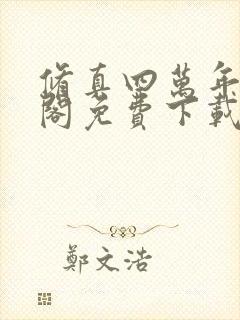 脩真四萬年
閣免費下載
鄭文浩